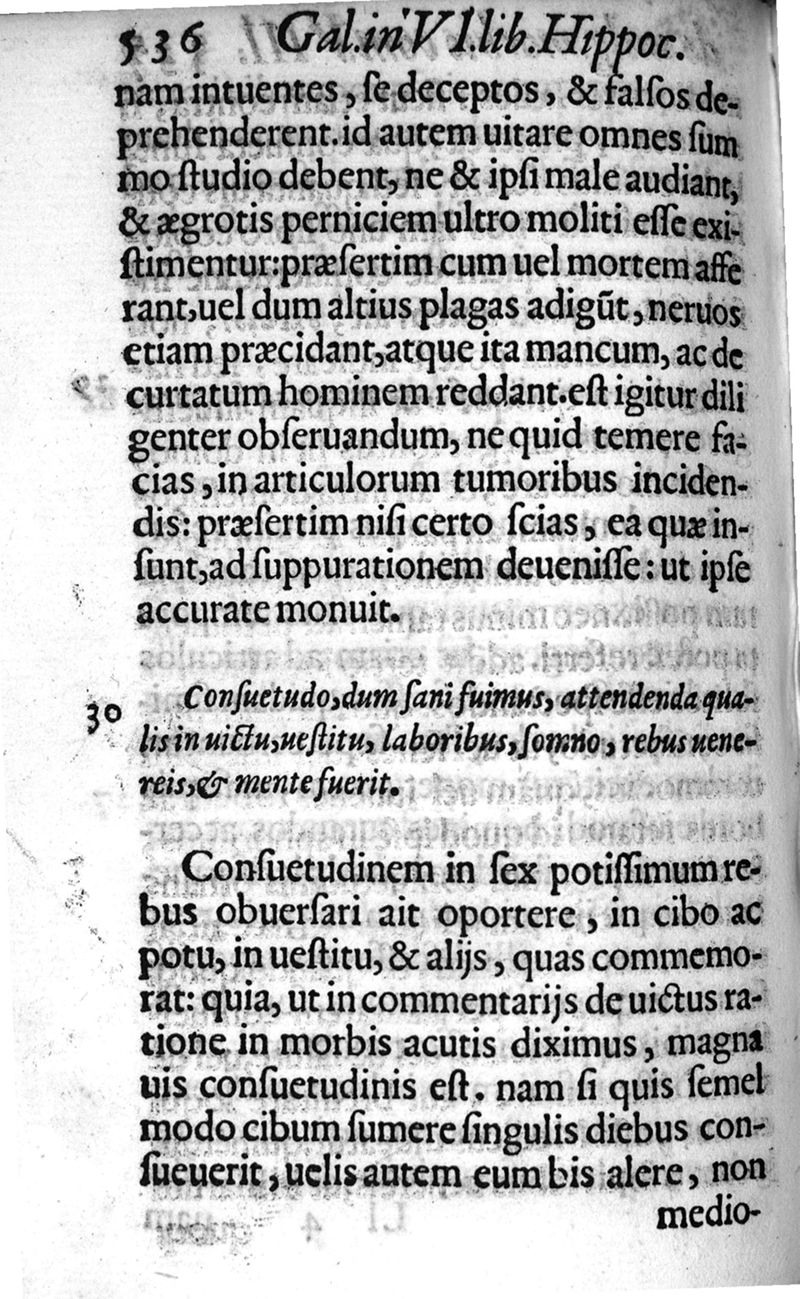 536 Gal.in VI.lib.Hippoc.
nam intuentes, ſe deceptos, & falſos de-
prehenderent. id autem uitare omnes ſum
mo ſtudio debent, ne & ipſi male audiant,
& ægrotis perniciem ultro moliti eſſe exi-
ſtimentur: præſertim cum uel mortem affe
rant, uel dum altius plagas adigũt, neruos
etiam præcidant, atque ita mancum, ac de
curtatum hominem reddant. eſt igitur dili
genter obſeruandum, ne quid temere fa-
cias, in articulorum tumoribus inciden-
dis: præſertim niſi certo ſcias, ea quæ in-
ſunt, ad ſuppurationem deueniſſe: ut ipſe
accurate monuit.
30 Conſuetudo, dum ſani fuimus, attendenda qua-
lis in uictu, ueſtitu, laboribus, ſomno, rebus uene-
reis, & mente fuerit.
Conſuetudinem in ſex potiſſimum re-
bus obuerſari ait oportere, in cibo ac
potu, in ueſtitu, & alijs, quas commemo-
rat: quia, ut in commentarijs de uictus ra-
tione in morbis acutis diximus, magna
uis conſuetudinis eſt. nam ſi quis ſemel
modo cibum ſumere ſingulis diebus con-
ſueuerit, uelis autem eum bis alere, non
medio-